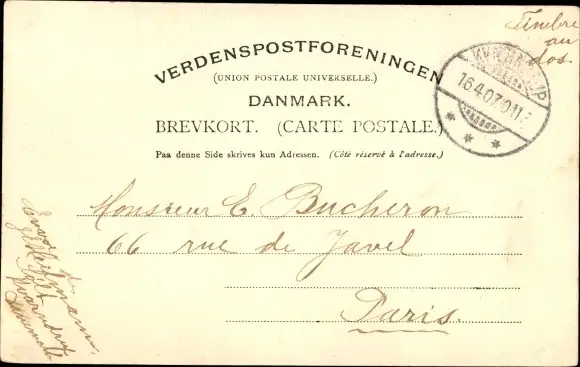 VERDENSPOSTFORENINGEN
(UNION POSTALE UNIVERSELLE.)
DANMARK.
BREVKORT. (CARTE POSTALE.)
Paa denne Side skrives kun Adressen. (Côté réservé à l'adresse.)
Timbre
au
dos.
16.4.07.
Monsieur E. Bucheron
66 rue de Javel
Paris.
Envoi de